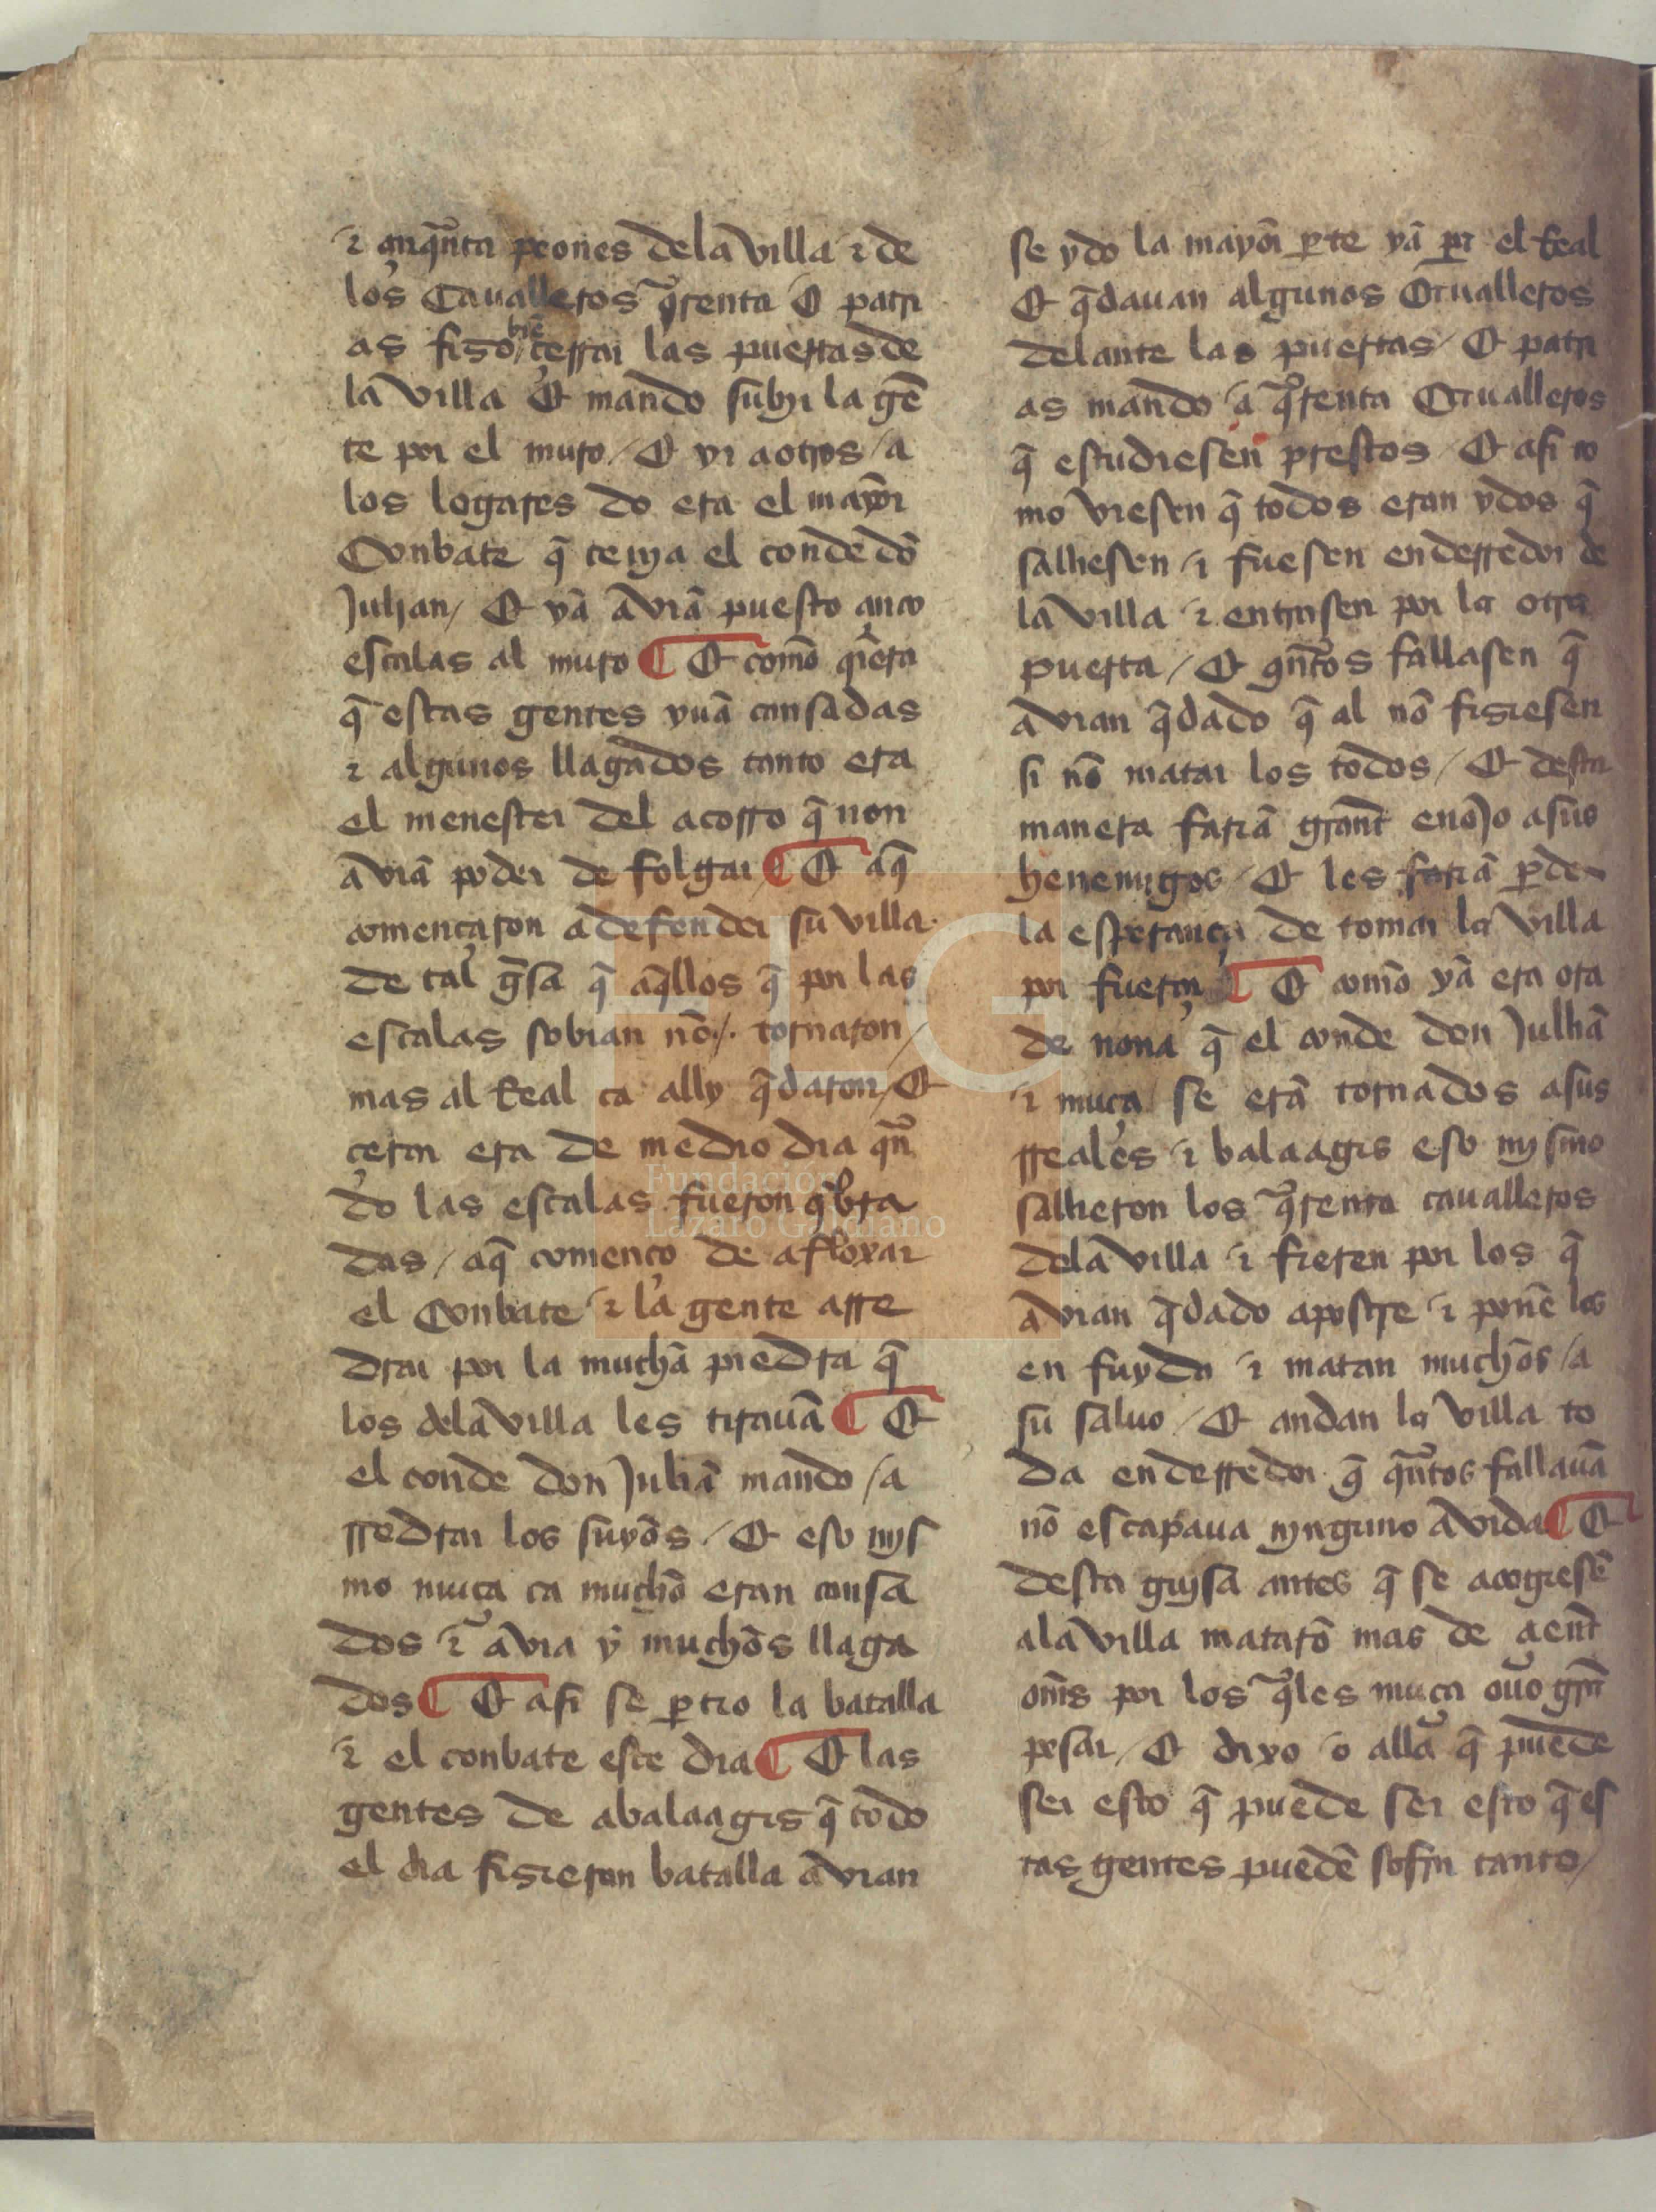 ⁊ çinq̃nta peones dela villa ⁊ de
los Caualleros q̃renta Et patri
as fiso bñe çerrar las puertas de
la villa Et mando subir la gẽ
te por el muro / Et yr a otros / a
los logares do era el mayor
Conbate q̃ tenja el conde dõ
Julian / Et yã aviã puesto çinco
escalas al muro ¶ Et como q̃era
q̃ estas gentes yuã cansadas
⁊ algunos llagados tanto era
el menester del acorro q̃ non
aviã poder de folgar / ¶ Et aq̃
comencaron a defender su villa
de tal g̃sa q̃ aq̃llos q̃ por las
escalas sobian nõ /. tornaron /
mas al Real ca ally q̃daron / Et
çerca era de medio dia q̃n
do las escalas fueron q̃bra
das / aq̃ començo de afloxar
el Conbate ⁊ la gente arre
drar por la muchã piedra q̃
los dela villa les tirauã ¶ Et
el conde don Juliã mando / a
rredrar los suyos / Et eso mjs
mo muça ca mucho eran cansa
dos ⁊ avia y muchos llaga
dos ¶ Et asi se ꝑtio la batalla
⁊ el conbate este dia ¶ Et las
gentes de abalaagis q̃ todo
el dia fisieron batalla avian
se ydo la mayor ꝑte yã ꝑa el Real
Et q̃dauan algunos Caualleros
delante las puertas / Et patri
as mando a q̃renta Caualleros
q̃ estudiesen prestos / Et asi co
mo viesen q̃ todos eran ydos q̃
salliesen ⁊ fuesen enderredor de
la villa ⁊ entrasen por la otra
puerta / Et q̃ntos fallasen q̃
avian q̃dado q̃ al nõ fisiesen
si nõ matar los todos / Et desta
manera fariã grant enojo a sus
henemigos / Et les fariã ꝑder
la esperança de tomar la villa
por fuerça ¶ Et como yã era ora
de nona q̃ el conde don Julliã
⁊ muça se erã tornados a sus
rreales ⁊ balaagis eso mjsmo
sallieron los q̃renta caualleros
dela villa ⁊ fieren por los q̃
avian q̃dado apostre ⁊ ponẽ los
en fuyda ⁊ matan muchos / a
su saluo / Et andan la villa to
da enderredor q̃ q̃ntos fallauã
nõ escapaua njnguno a vida ¶ Et
desta gujsa antes q̃ se acogiesẽ
ala villa matarõ mas de çient
om̃s por los q̃les muça ouo grãt
pesar / Et dixo o alla q̃ puede
ser esto q̃ puede ser esto q̃ es
tas gentes puedẽ sofrir tanto /
Fundación
Lázaro Galdiano